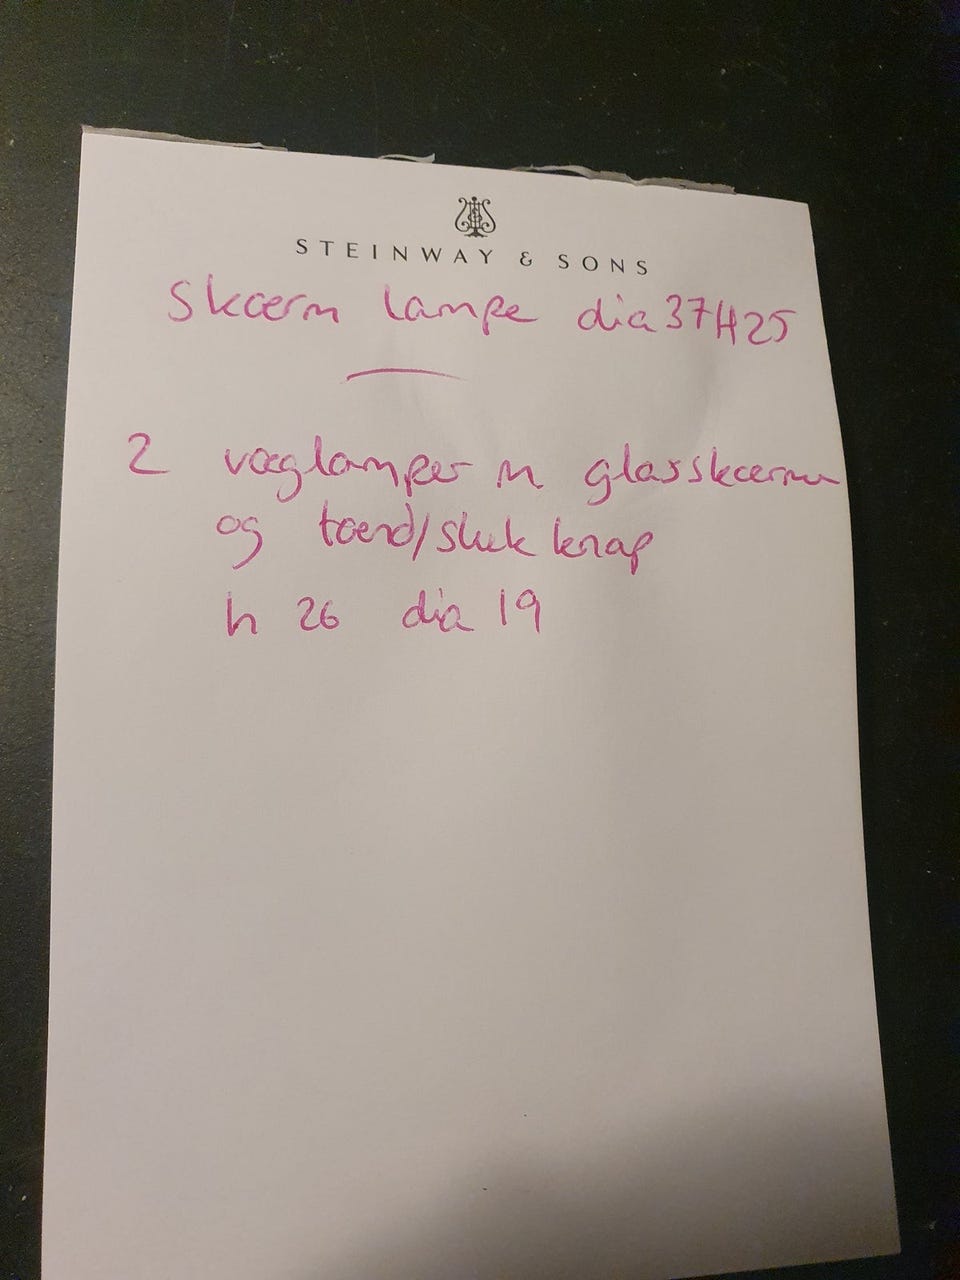 STEINWAY & SONS
Skærm lampe dia 37 H25
2 væglamper m glasskærme
og tænd/sluk knap
h 26 dia 19